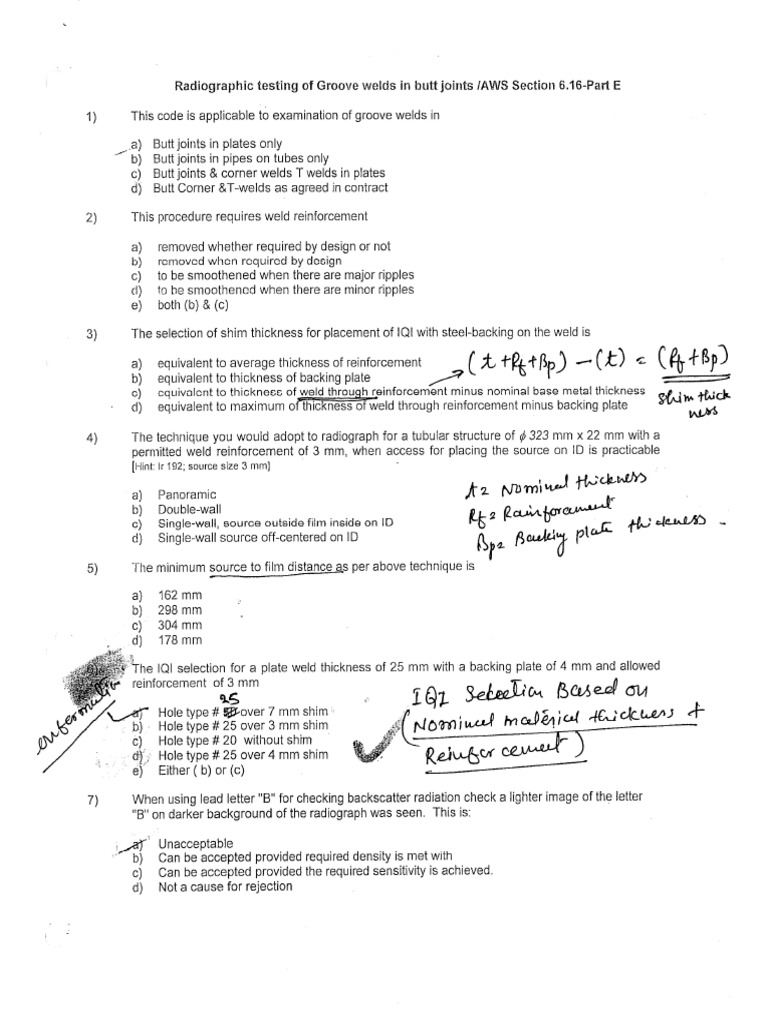 Radiographic testing of Groove welds in butt joints /AWS Section 6.16-Part E
1) This code is applicable to examination of groove welds in
a) Butt joints in plates only
b) Butt joints in pipes on tubes only
c) Butt joints & corner welds T welds in plates
d) Butt Corner &T-welds as agreed in contract
2) This procedure requires weld reinforcement
a) removed whether required by design or not
b) removed when required by design
c) to be smoothened when there are major ripples
d) to be smoothened when there are minor ripples
e) both (b) & (c)
3) The selection of shim thickness for placement of IQI with steel-backing on the weld is
a) equivalent to average thickness of reinforcement
b) equivalent to thickness of backing plate
c) equivalent to thickness of weld through reinforcement minus nominal base metal thickness
d) equivalent to maximum of thickness of weld through reinforcement minus backing plate
(t + Rf + Bp) - (t) = (Rf + Bp)
Shim thick
ness
4) The technique you would adopt to radiograph for a tubular structure of ϕ 323 mm x 22 mm with a
permitted weld reinforcement of 3 mm, when access for placing the source on ID is practicable
[Hint: Ir 192; source size 3 mm]
a) Panoramic
b) Double-wall
c) Single-wall, source outside film inside on ID
d) Single-wall source off-centered on ID
t = Nominal thickness
Rf = Rainforament
Bp = Backing plate thickness -
5) The minimum source to film distance as per above technique is
a) 162 mm
b) 298 mm
c) 304 mm
d) 178 mm
The IQI selection for a plate weld thickness of 25 mm with a backing plate of 4 mm and allowed
reinforcement of 3 mm
25
a) Hole type # over 7 mm shim
b) Hole type # 25 over 3 mm shim
c) Hole type # 20 without shim
d) Hole type # 25 over 4 mm shim
e) Either ( b) or (c)
IQI Selection Based on
(Nominal material thickness +
Reinforcement)
7) When using lead letter "B" for checking backscatter radiation check a lighter image of the letter
"B" on darker background of the radiograph was seen. This is:
a) Unacceptable
b) Can be accepted provided required density is met with
c) Can be accepted provided the required sensitivity is achieved.
d) Not a cause for rejection